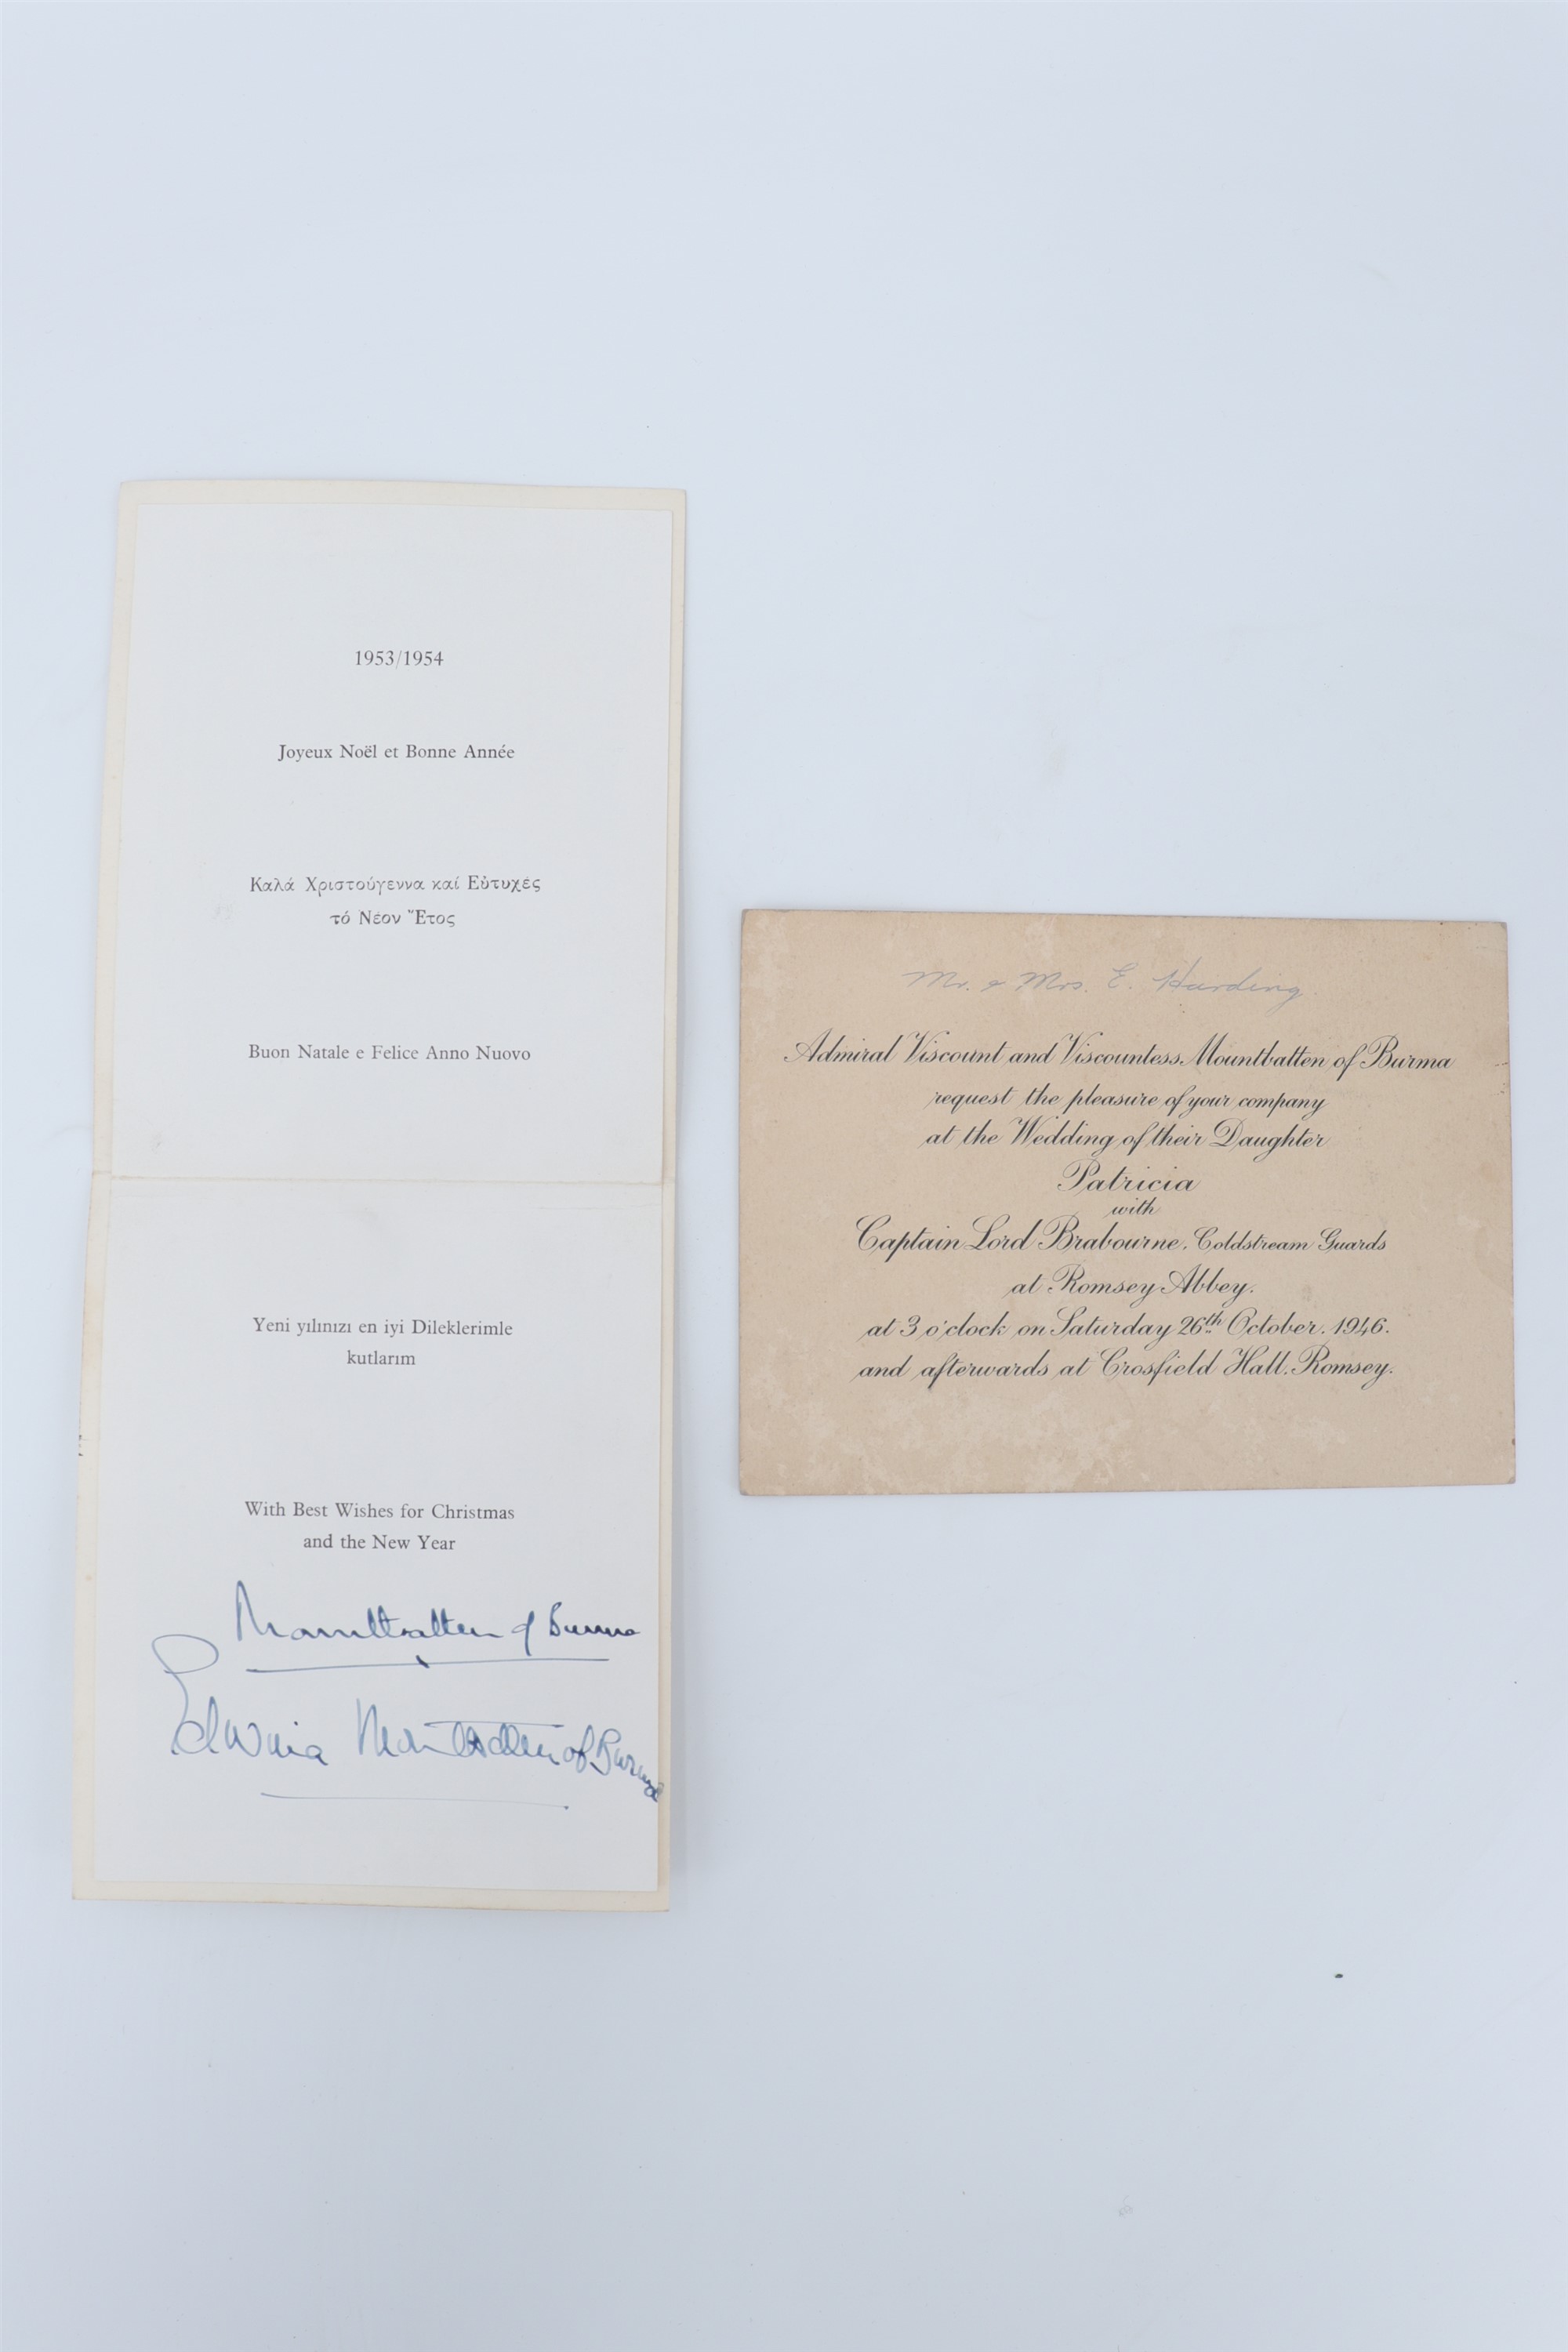 1953/1954
Joyeux Noël et Bonne Année
Καλά Χριστούγεννα καί Εὐτυχές
τό Νέον Ἔτος
Buon Natale e Felice Anno Nuovo
Yeni yılınızı en iyi Dileklerimle
kutlarım
With Best Wishes for Christmas
and the New Year
Mountbatten of Burma
Edwina Mountbatten of Burma
Mr. & Mrs. E. Harding.
Admiral Viscount and Viscountess Mountbatten of Burma
request the pleasure of your company
at the Wedding of their Daughter
Patricia
with
Captain Lord Brabourne, Coldstream Guards
at Romsey Abbey.
at 3 o'clock on Saturday 26th October, 1946.
and afterwards at Crosfield Hall, Romsey.